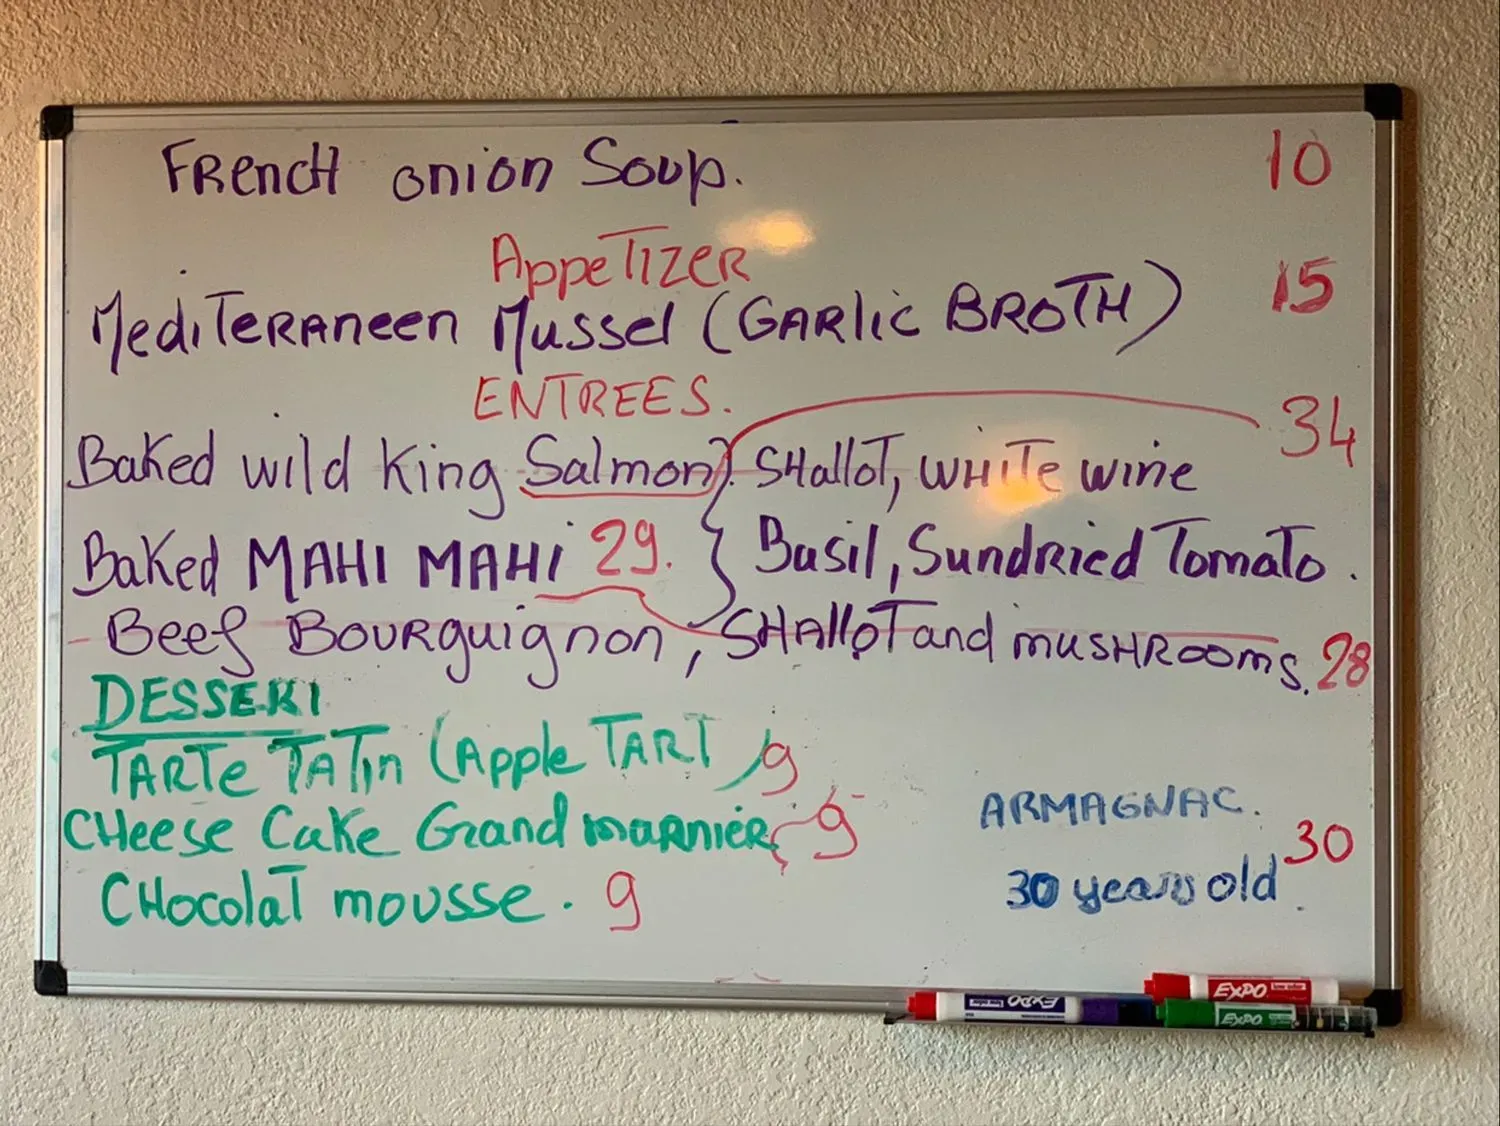 FRench onion Soup. 10
AppeTIZER
MediTeRAneen Mussel (GARlic BROTH) 15
ENTREES.
Baked wild King Salmon). SHalloT, WHiTe wine 34
Baked MAHI MAHi 29. Basil, Sundried Tomato.
Beef Bourguignon, SHalloT and musHRooms. 28
DESSERT
TARTe TATin (Apple TART) 9
CHeese Cake Grand maRnieR 9
CHocolaT mousse. 9
ARMAGNAC.
30 years old. 30
EXPO
EXPO
EXPO